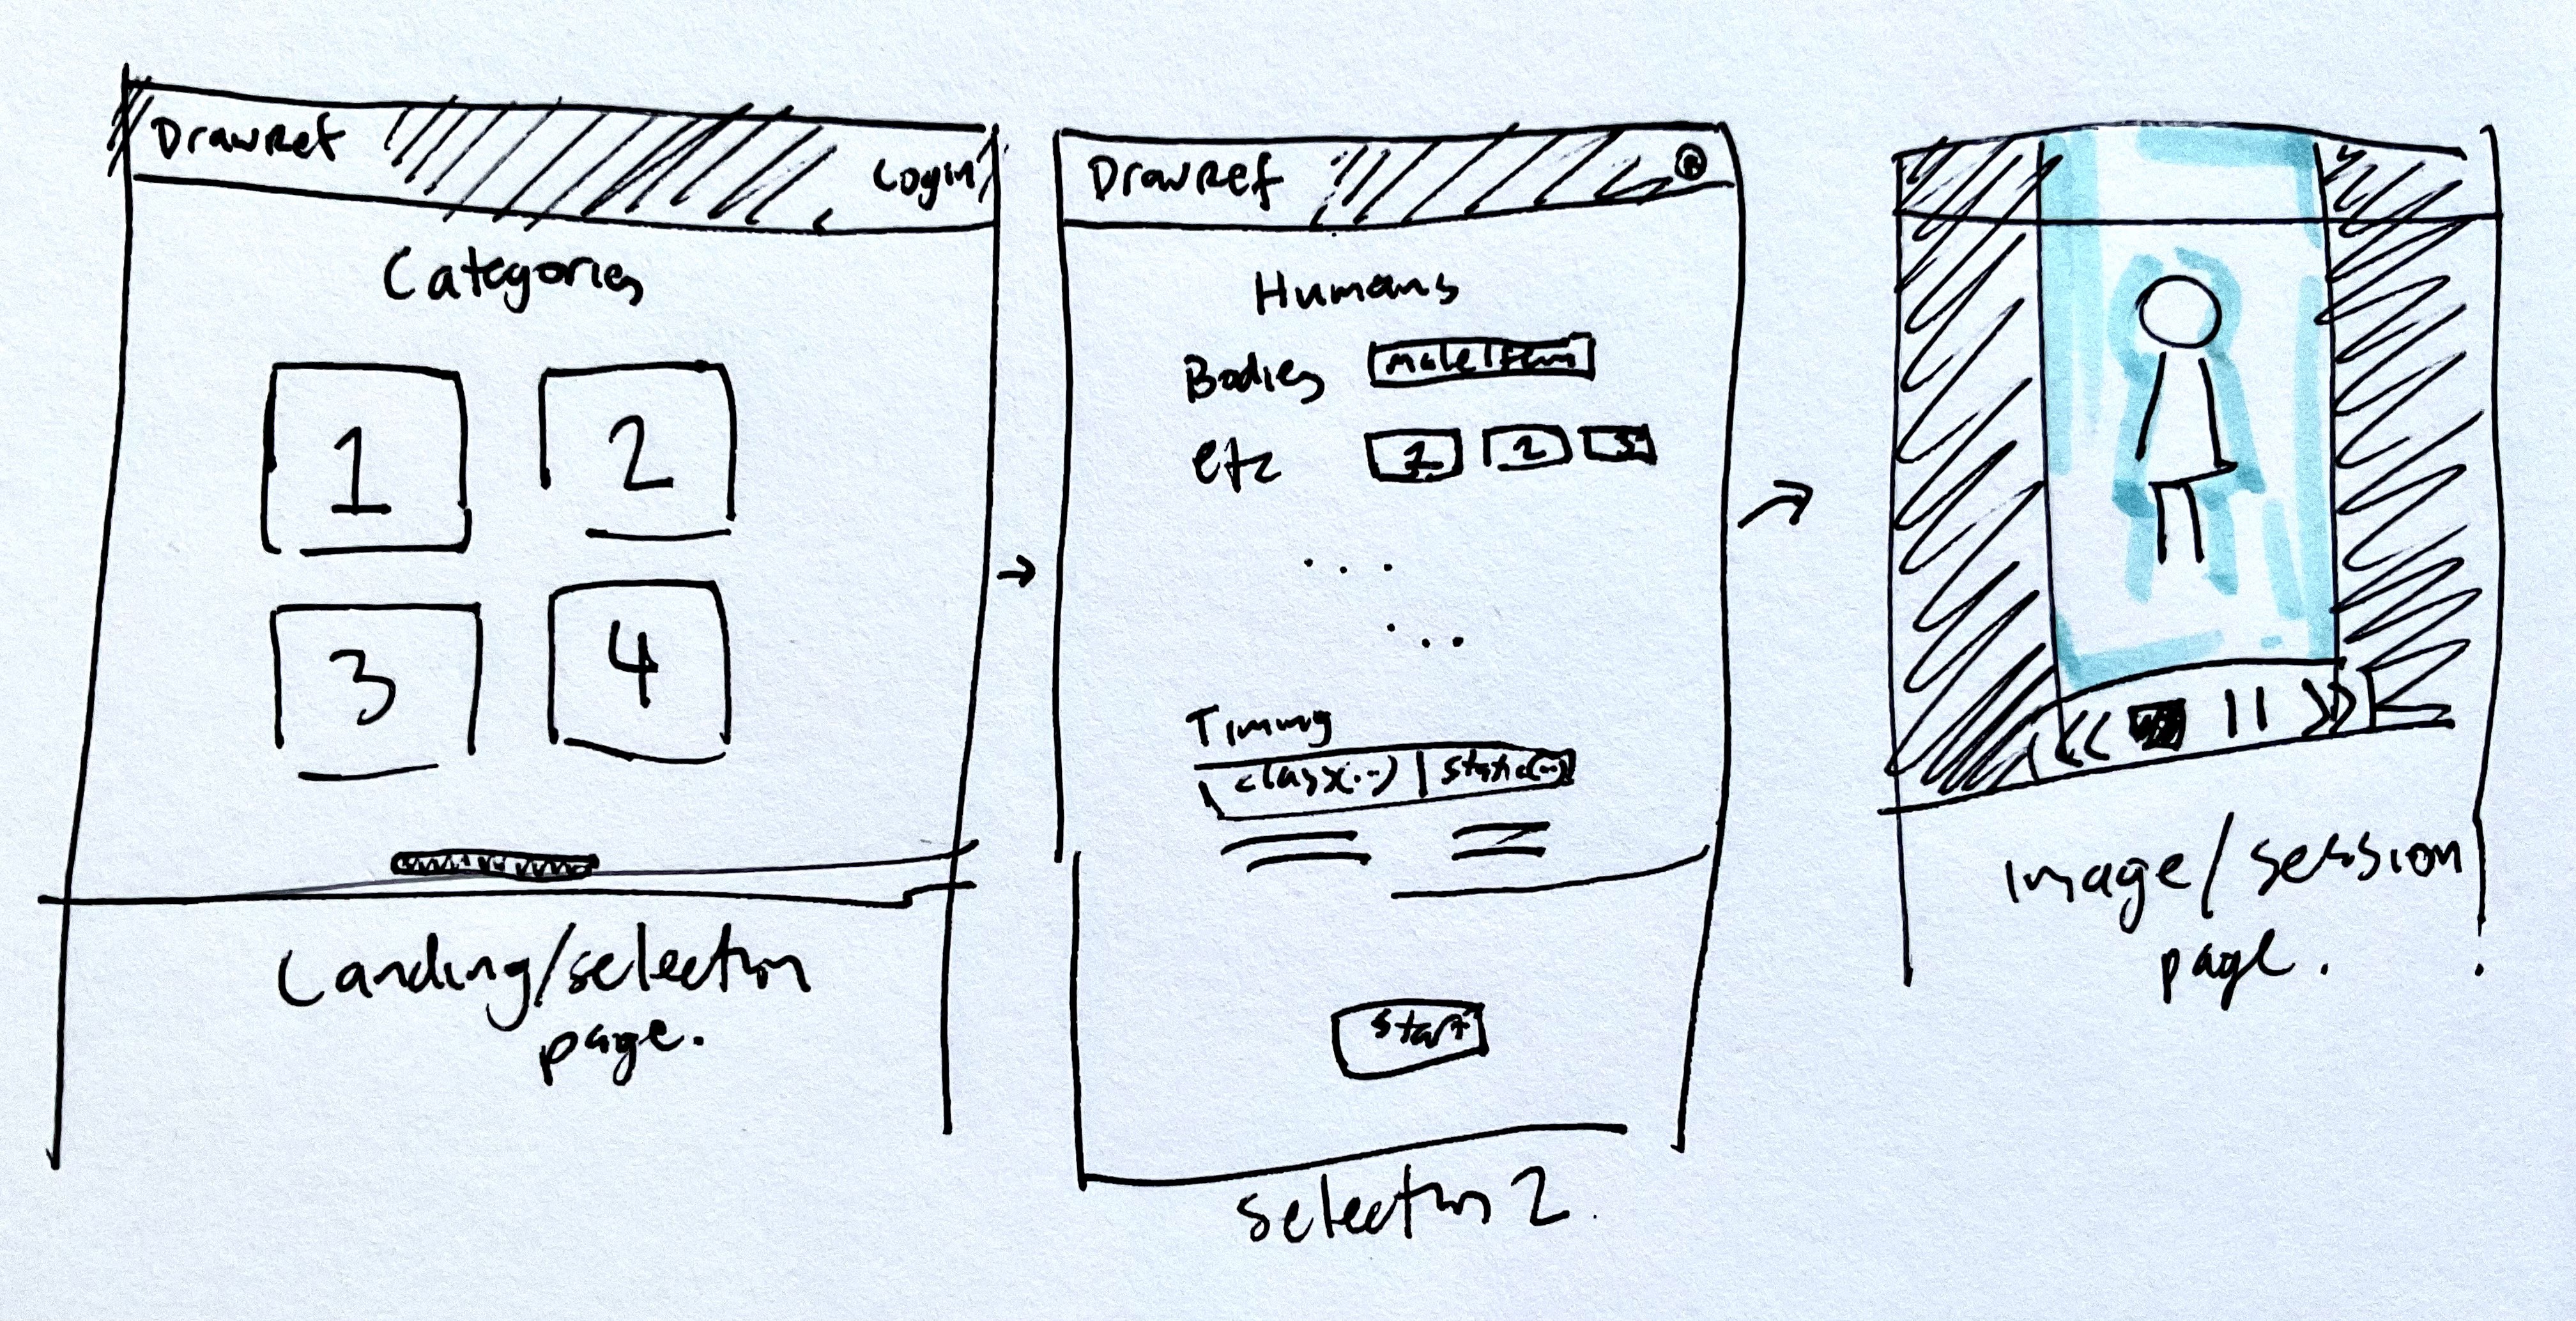 DrawRef
Login
Categories
1
2
3
4
Landing/selection
page.
DrawRef
Humans
Bodies
male | fem
etc
1
2
3
...
...
Timing
class(...) | static(...)
Start
Selection 2.
<< || >>
image/session
page.